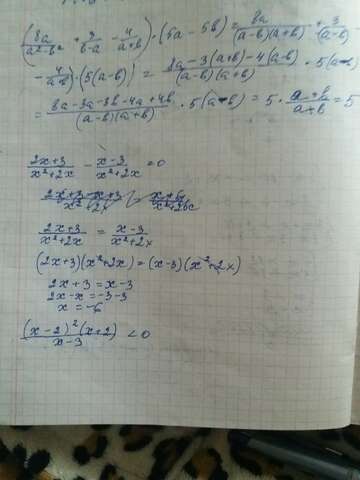 (8a/(a²-b²) + 3/(b-a) - 4/(a+b)) · (5a - 5b) = 8a/((a-b)(a+b)) + 3/-(a-b)
- 4/(a+b)) · (5(a-b)) = (8a-3(a+b)-4(a-b))/((a-b)(a+b)) · 5(a-b)
= (8a-3a-3b-4a+4b)/((a-b)(a+b)) · 5(a-b) = 5 · (a+b)/(a+b) = 5
(2x+3)/(x²+2x) - (x-3)/(x²+2x) = 0
(2x+3)/(x²+2x) = (x-3)/(x²+2x)
(2x+3)(x²+2x) = (x-3)(x²+2x)
2x+3 = x-3
2x-x = -3-3
x = -6
((x-2)²(x+2))/(x-3) < 0